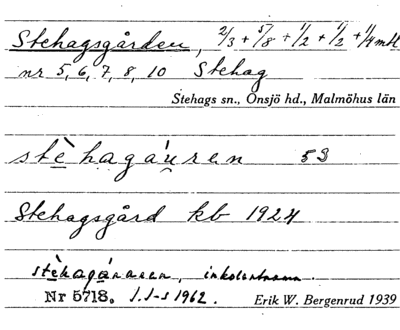 Stehagsgården, 2/3 + 5/8 + 1/2 + 1/2 + 1/4 mtl
nr 5, 6, 7, 8, 10 Stehag
Stehags sn., Onsjö hd., Malmöhus län
stè hagáu̯ren 53
Stehagsgård kb 1924
inkolentnamn.
Nr 5718. 1962.
Erik W. Bergenrud 1939